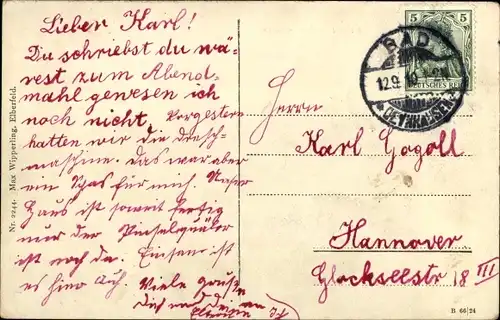 Lieber Karl!
Du schriebst du wä-
rest zum Abend-
mahl gewesen ich
noch nicht, Vorgestern
hatten wir die Dresch-
maschine. Das war aber
ein Spas für mich. Unser
Haus ist soweit fertig
nur der Pinselquäler
ist noch da. Einsam ist
es hier auch. Viele Grüße
Nr. 2244. Max Wipperling, Elberfeld.
5 5
DEUTSCHES REICH
BAD
12.9.10
OEYNHAUSEN
Herrn
Karl Gogoll
Hannover
Glockseestr 18 III
B 66/24